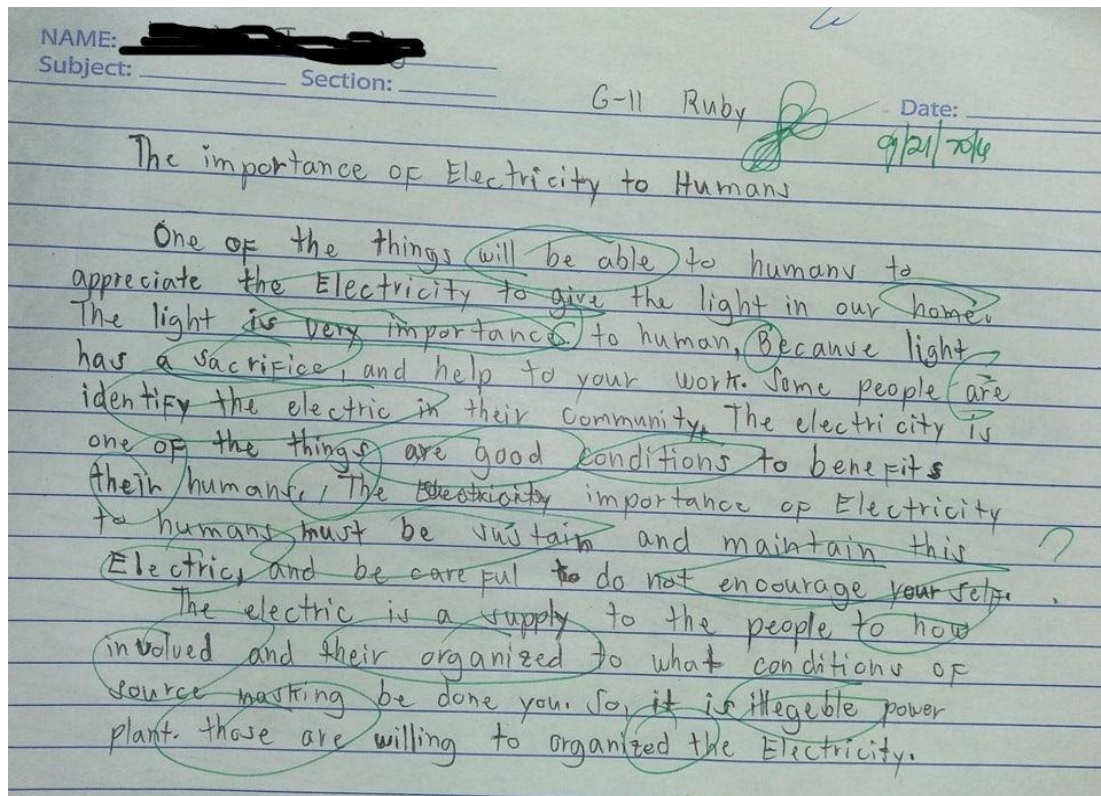 NAME:
Subject: Section:
G-11 Ruby Date:
09/21/2016
The importance of Electricity to Humans
One of the things will be able to humans to
appreciate the Electricity to give the light in our home.
The light is very importances to human, Because light
has a sacrifice, and help to your work. Some people are
identify the electric in their community, The electricity is
one of the things are good conditions to benefits
their humans., The importance of Electricity
to humans must be sustain and maintain this ?
Electric, and be careful to do not encourage your self.
The electric is a supply to the people to how
involved and their organized to what conditions of
source masking be done you. So, it is illegeble power
plant. those are willing to organized the Electricity.